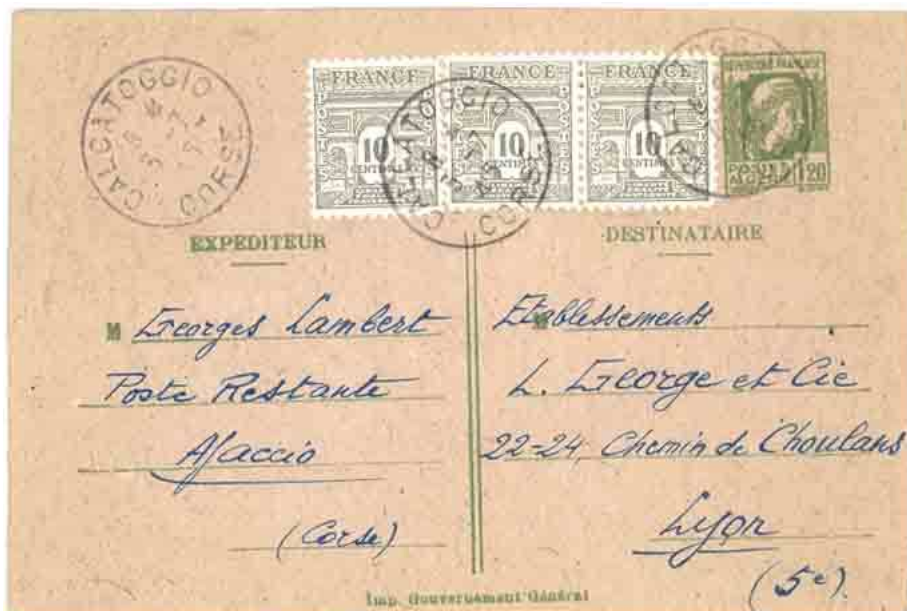 CALCATOGGIO
CORSE
FRANCE
10
CENTIMES
FRANCE
10
CENTIMES
FRANCE
10
CENTIMES
CALCATOGGIO
CORSE
1.20
EXPÉDITEUR
M Georges Lambert
Poste Restante
Ajaccio
(Corse)
DESTINATAIRE
M
Etablissements
L. George et Cie
22-24, Chemin de Choulans
Lyon
(5e)
Imp. Gouvernement Général